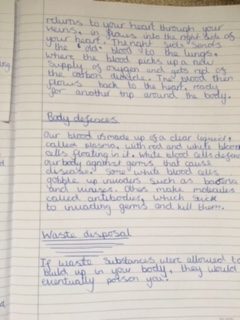 returns to your heart through your
veins, it flows into the right side of
your heart. The right side sends
the "old" blood to the lungs,
where the blood picks up a new
supply of oxygen and gets rid of
the carbon dioxide. The blood then
flows back to the heart, ready
for another trip around the body.
Body defences
Our blood is made up of a clear liquid,
called plasma, with red and white blood
cells floating in it. White blood cells defend
our body against germs that cause
disease. Some white blood cells
gobble up invaders such as bacteria
and viruses. Others make molecules
called antibodies, which stick
to invading germs and kill them.
Waste disposal
If waste substances were allowed to
build up in your body, they would
eventually poison you!